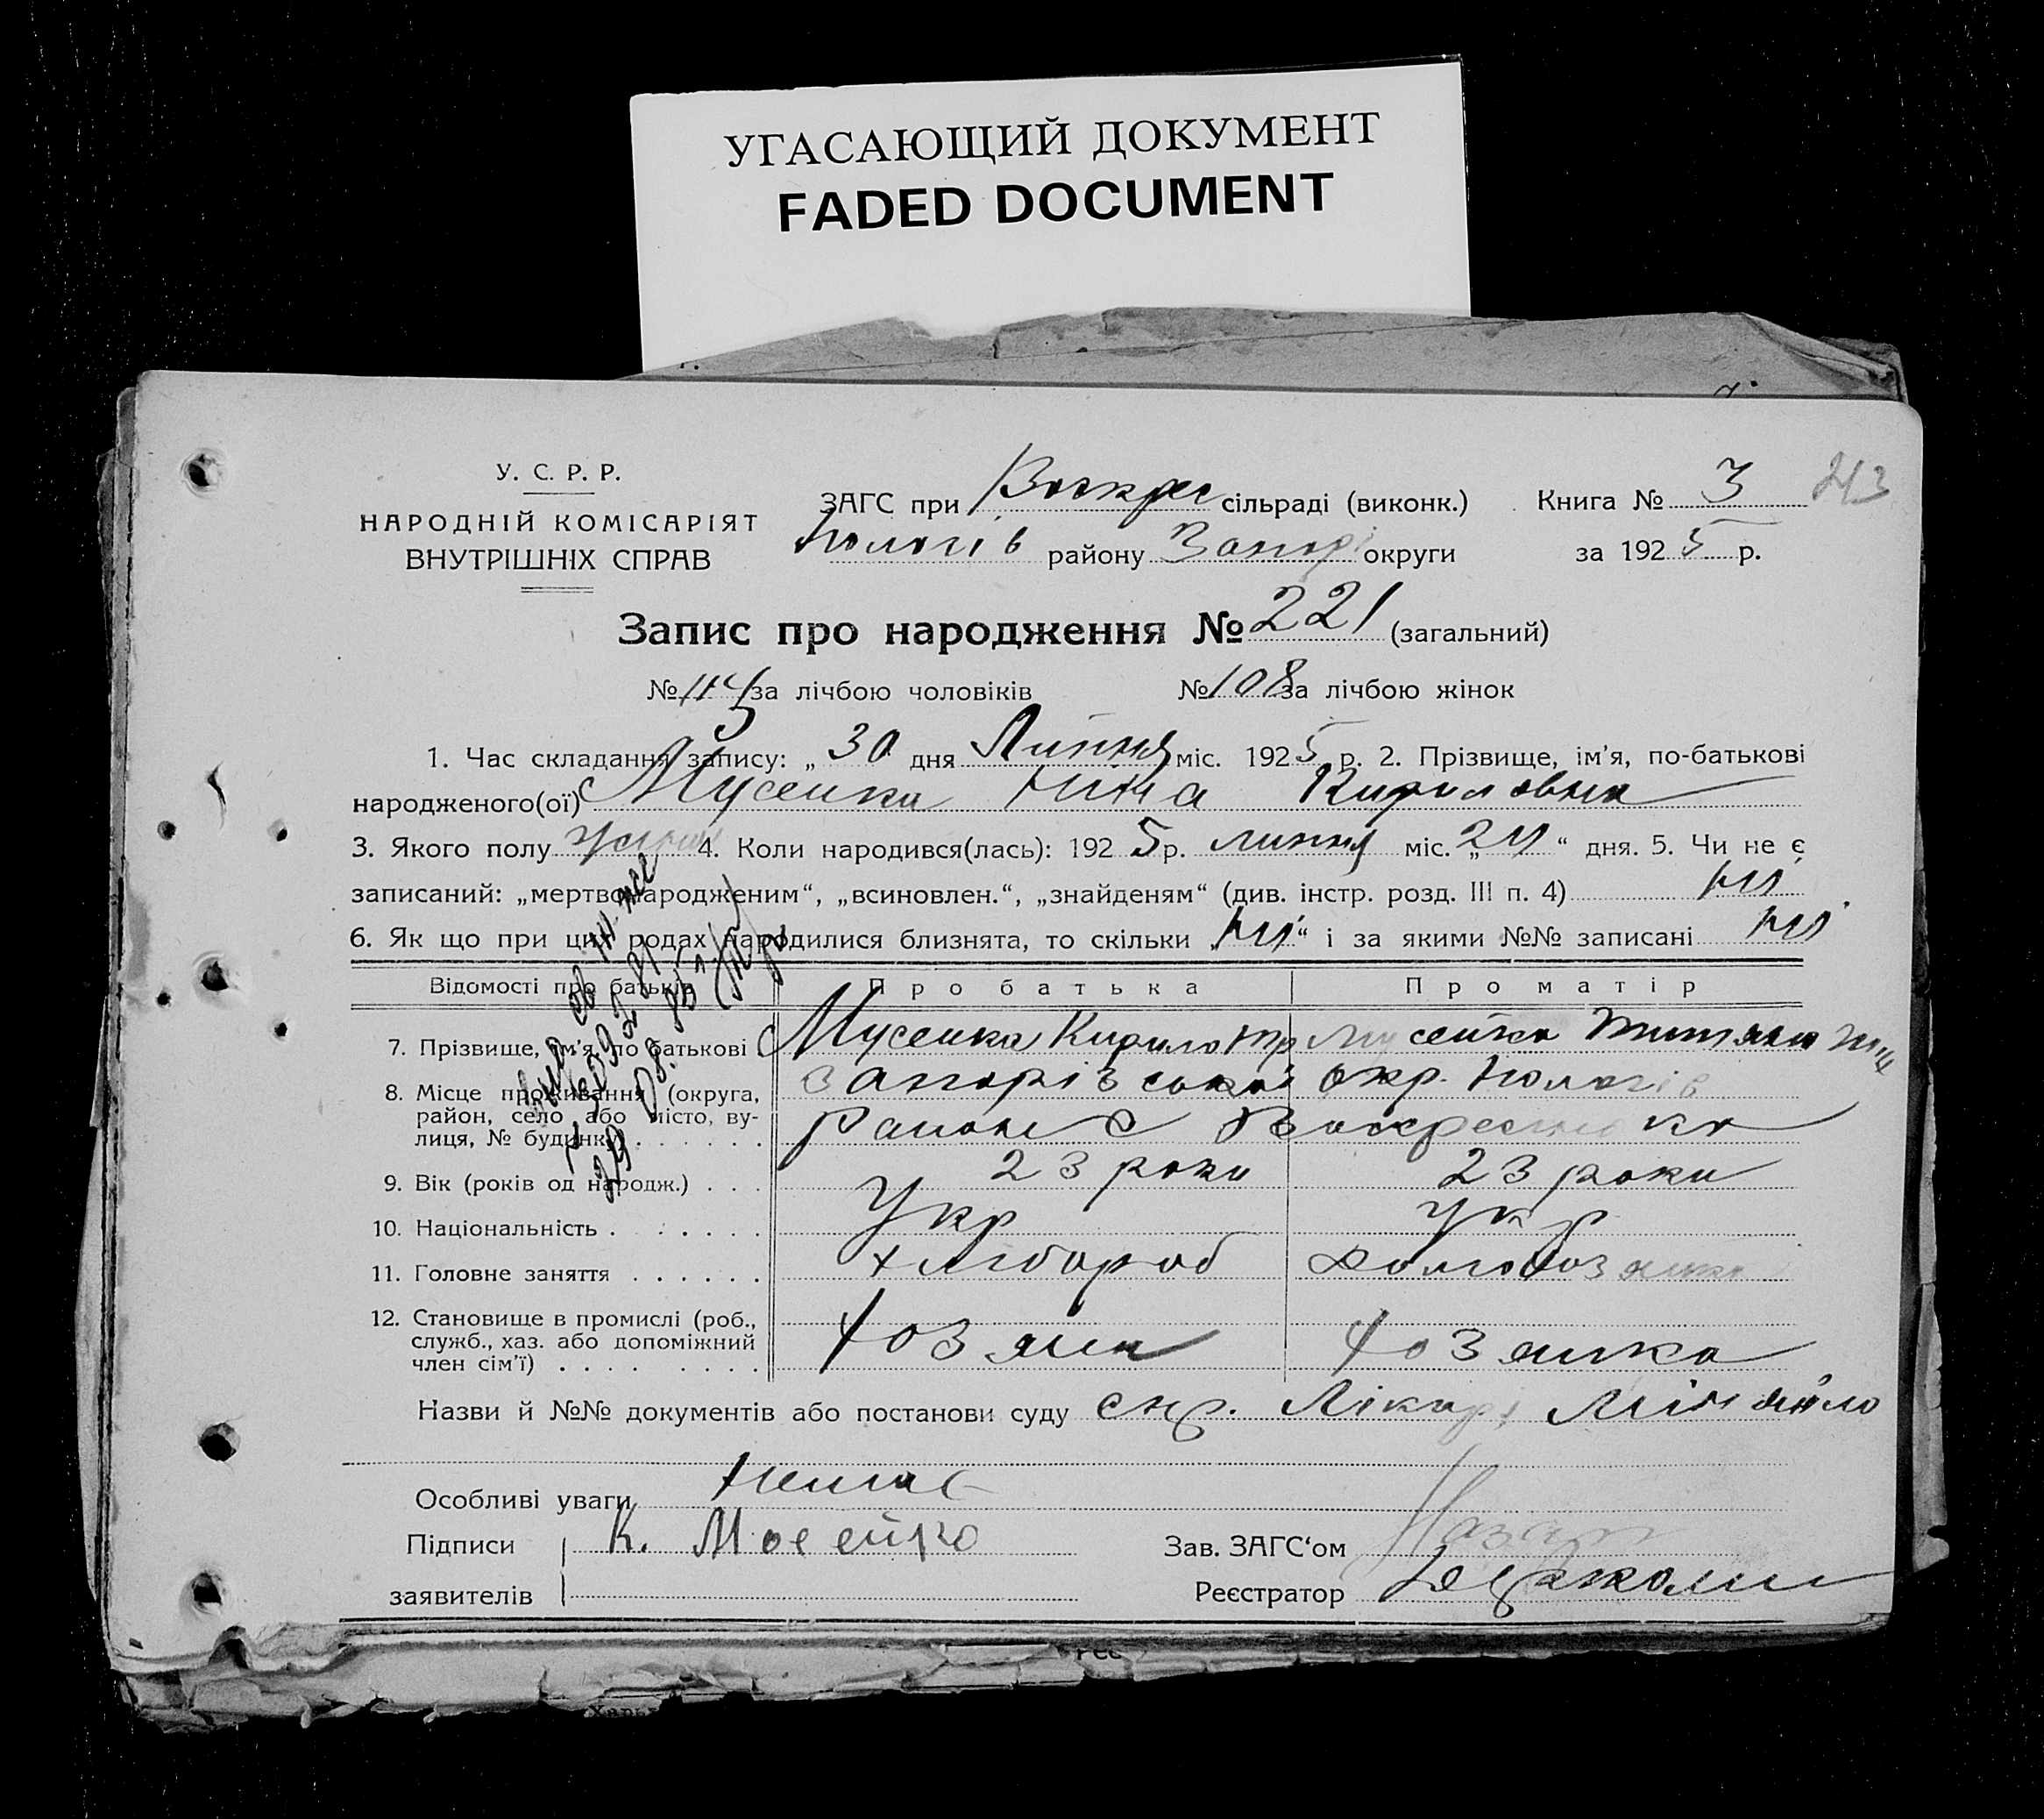 УГАСАЮЩИЙ ДОКУМЕНТ
FADED DOCUMENT
У. С. Р. Р.
НАРОДНІЙ КОМІСАРІЯТ
ВНУТРІШНІХ СПРАВ
ЗАГС при Воскрес сільраді (виконк.)
Пологів району Запорі округи
Книга № 3
за 1925 р.
Запис про народження № 221 (загальний)
№ за лічбою чоловіків № 108 за лічбою жінок
1. Час складання запису: „ 30 дня Липня міс. 1925 р. 2. Прізвище, ім'я, по-батькові
народженого(ої) Мусейка Ніна Кириловна
3. Якого полу 4. Коли народився(лась): 1925 р. липня міс. „ “ дня. 5. Чи не є
записаний: „мертвонародженим“, „всиновлен.“, „знайденям“ (див. інстр. розд. III п. 4) ні
6. Як що при цих родах народилися близнята, то скільки „ні“ і за якими №№ записані ні
Відомості про батьків Про батька Про матір
7. Прізвище, ім'я, по батькові Мусейка Кирило Мусейка
8. Місце проживання (округа,
район, село або місто, ву-
лиця, № будинку)
Запорізської окр. Пологів
району с Воскресенка
9. Вік (років од народж.) . . . 23 роки 23 роки
10. Національність . . . . . . Укр Укр
11. Головне заняття . . . . . . хлібороб домохозяйка
12. Становище в промислі (роб.,
служб., хаз. або допоміжний
член сім'ї) . . . . . . . .
хозяин хозяйка
Назви й №№ документів або постанови суду Лікаря
Особливі уваги Немає
Підписи К. Мосейко
заявителів
Зав. ЗАГС‘ом
Реєстратор